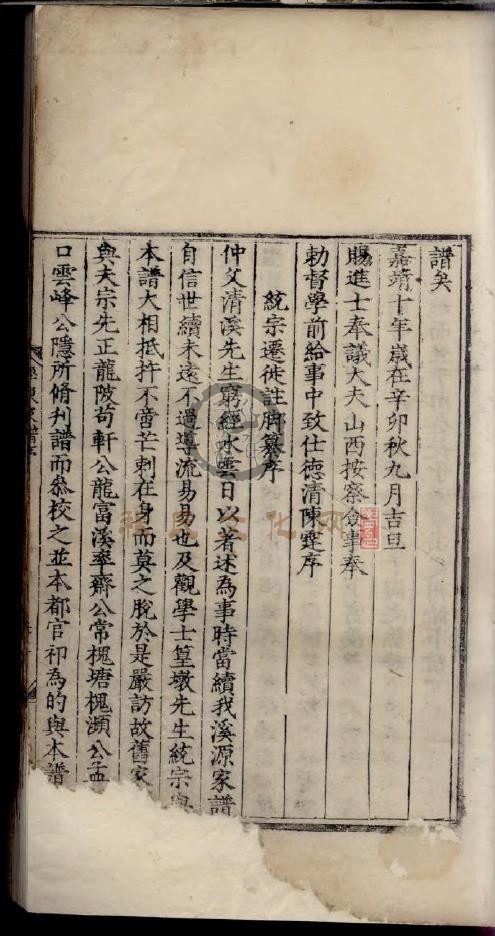 譜矣
嘉靖十年歲在辛卯秋九月吉旦
賜進士奉議大夫山西按察僉事奉
勅督學前給事中致仕德清陳霆序
統宗遷徙註脚纂序
仲父清溪先生窮經水雲日以著述為事時當續我溪源家譜
自信世續未遠不過導流易易也及觀學士篁墩先生統宗與
本譜大相抵捍不啻芒刺在身而莫之脫於是嚴訪故舊家
與夫宗先正龍陂苟軒公龍富溪率齋公常槐塘槐瀕公孟
口雲峰公隱所脩刊譜而叅校之並本都官祁為的與本譜